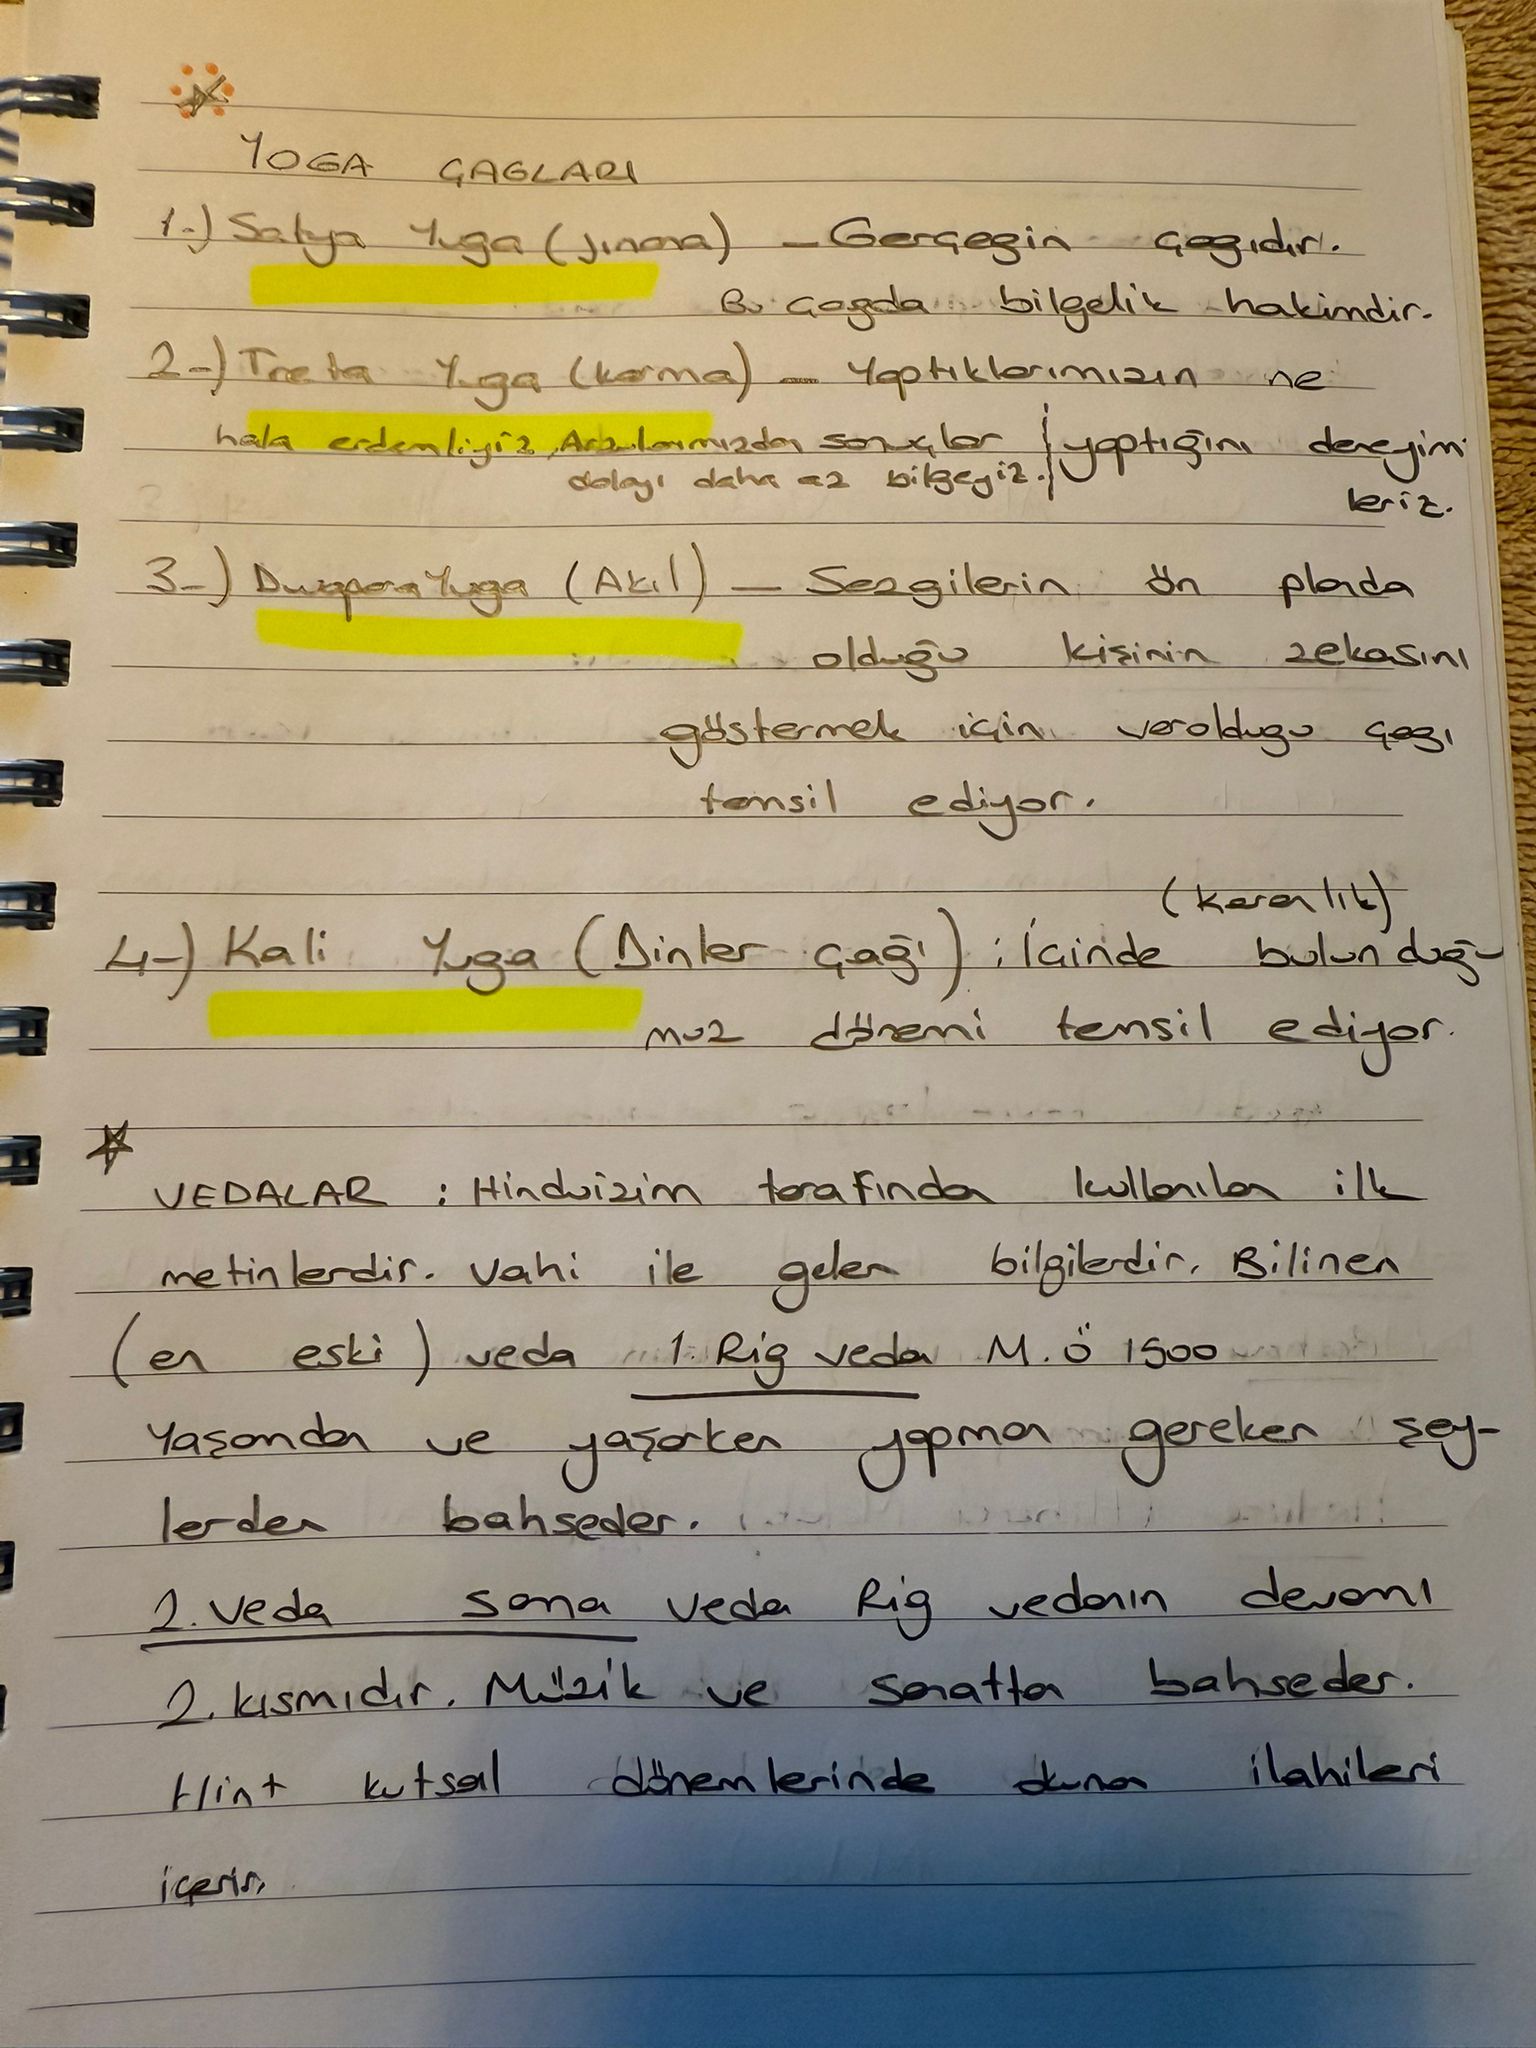 YOGA ÇAGLARI
1-) Satya Yuga (jnana) - Gerçegin çagıdır.
Bu çagda bilgelik hakimdir.
2-) Treta Yuga (karma) - Yaptıklarımızın ne
hala erdemliyiz, Arzularımızdan sonuçlar yaptığını deneyim-
dolayı daha az bilgeyiz. leriz.
3-) Dwapara Yuga (Akıl) - Sezgilerin ön planda
olduğu kişinin zekasını
göstermek için varoldugu çagı
temsil ediyor.
(karanlık)
4-) Kali Yuga (Dinler çağı) : İçinde bulunduğu
muz dönemi temsil ediyor.
VEDALAR : Hinduizim tarafından kullanılan ilk
metinlerdir. Vahi ile gelen bilgilerdir. Bilinen
(en eski) veda 1. Rig veda M.Ö 1500
Yaşamdan ve yaşarken yapman gereken şey-
lerden bahseder.
2. veda sama veda Rig vedanın devamı
2. kısmıdır. Müzik ve sanattan bahseder.
Hint kutsal dönemlerinde okunan ilahileri
içerir.